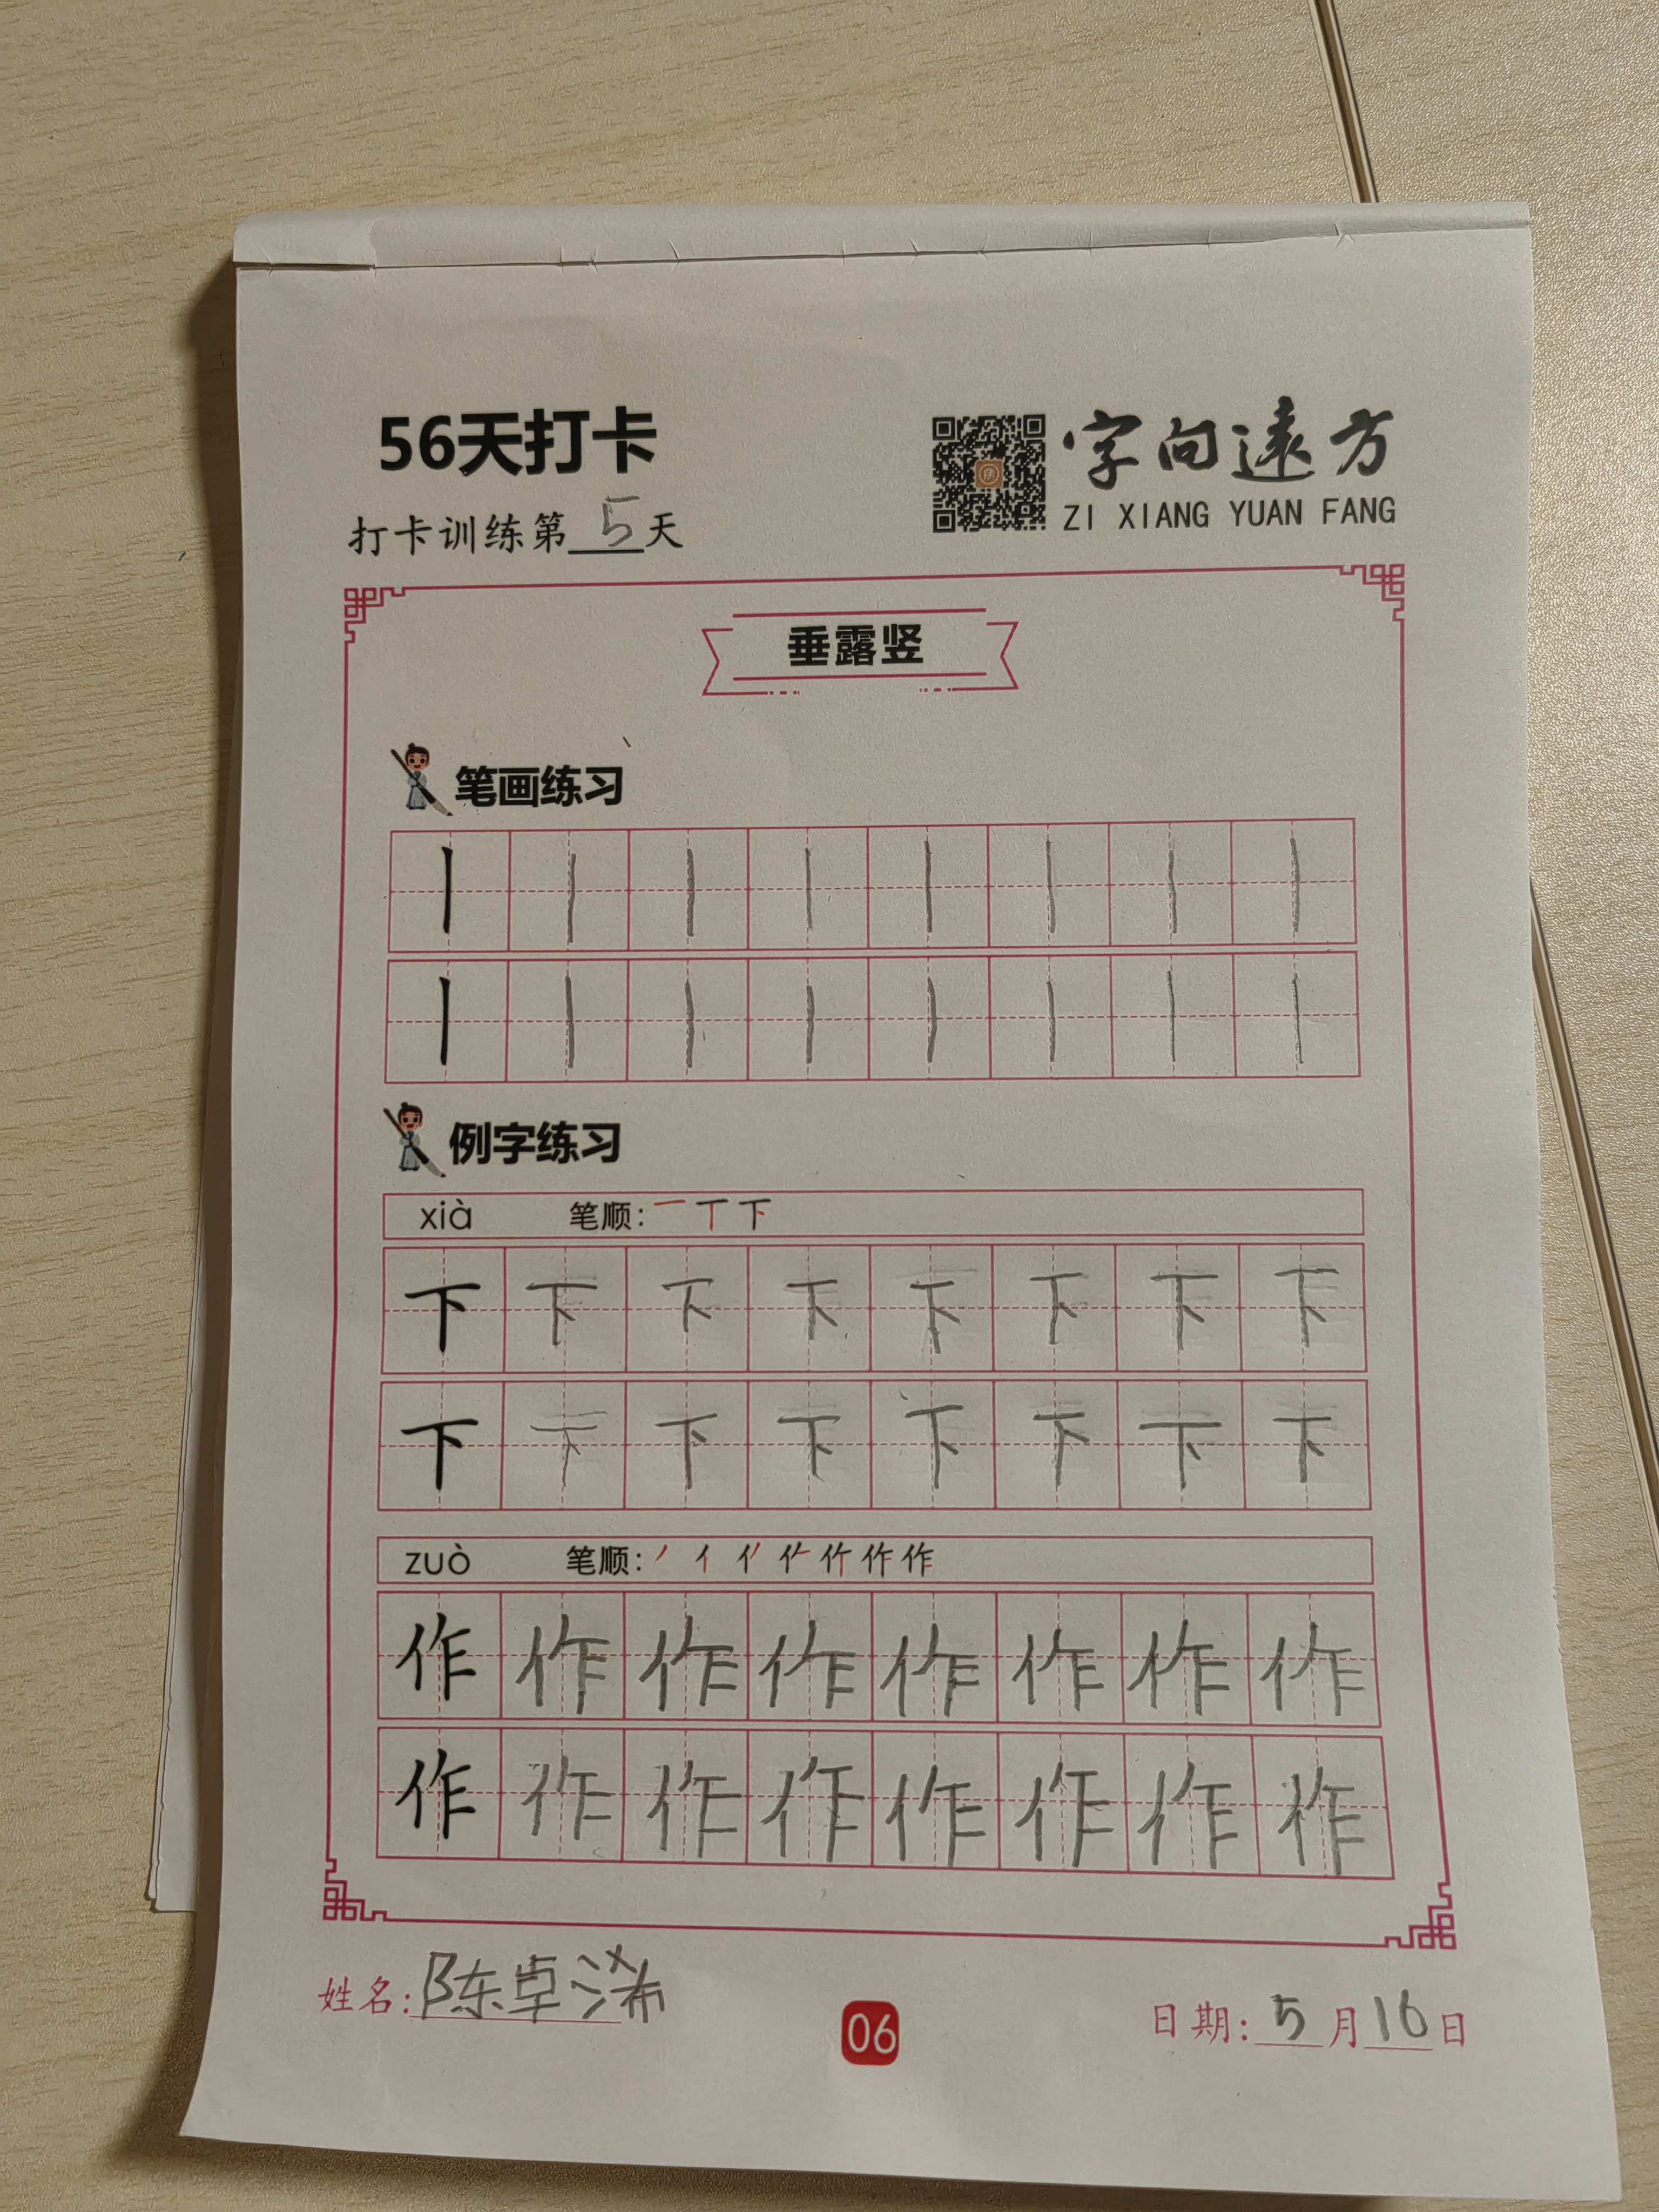 56天打卡
字向遠方
ZI XIANG YUAN FANG
打卡训练第5天
垂露竖
笔画练习
丨丨丨丨丨丨丨丨
丨丨丨丨丨丨丨丨
例字练习
xià 笔顺:一丅下
下下下下下下下下
下下下下下下下下
zuò 笔顺:
作作作作作作作作
作作作作作作作作
姓名:陈卓浠
06
日期:5月16日